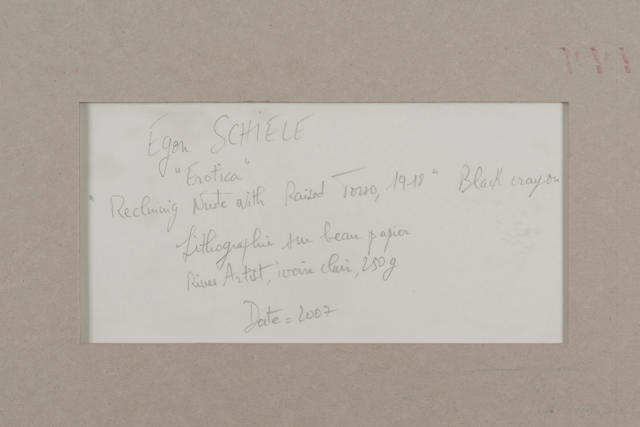 Egon SCHIELE
"Erotica"
"Reclining Nude with Raised Torso, 1918" Black crayon
Lithographie sur beau papier
Rives Artist, ivoire clair, 250g
Date = 2007